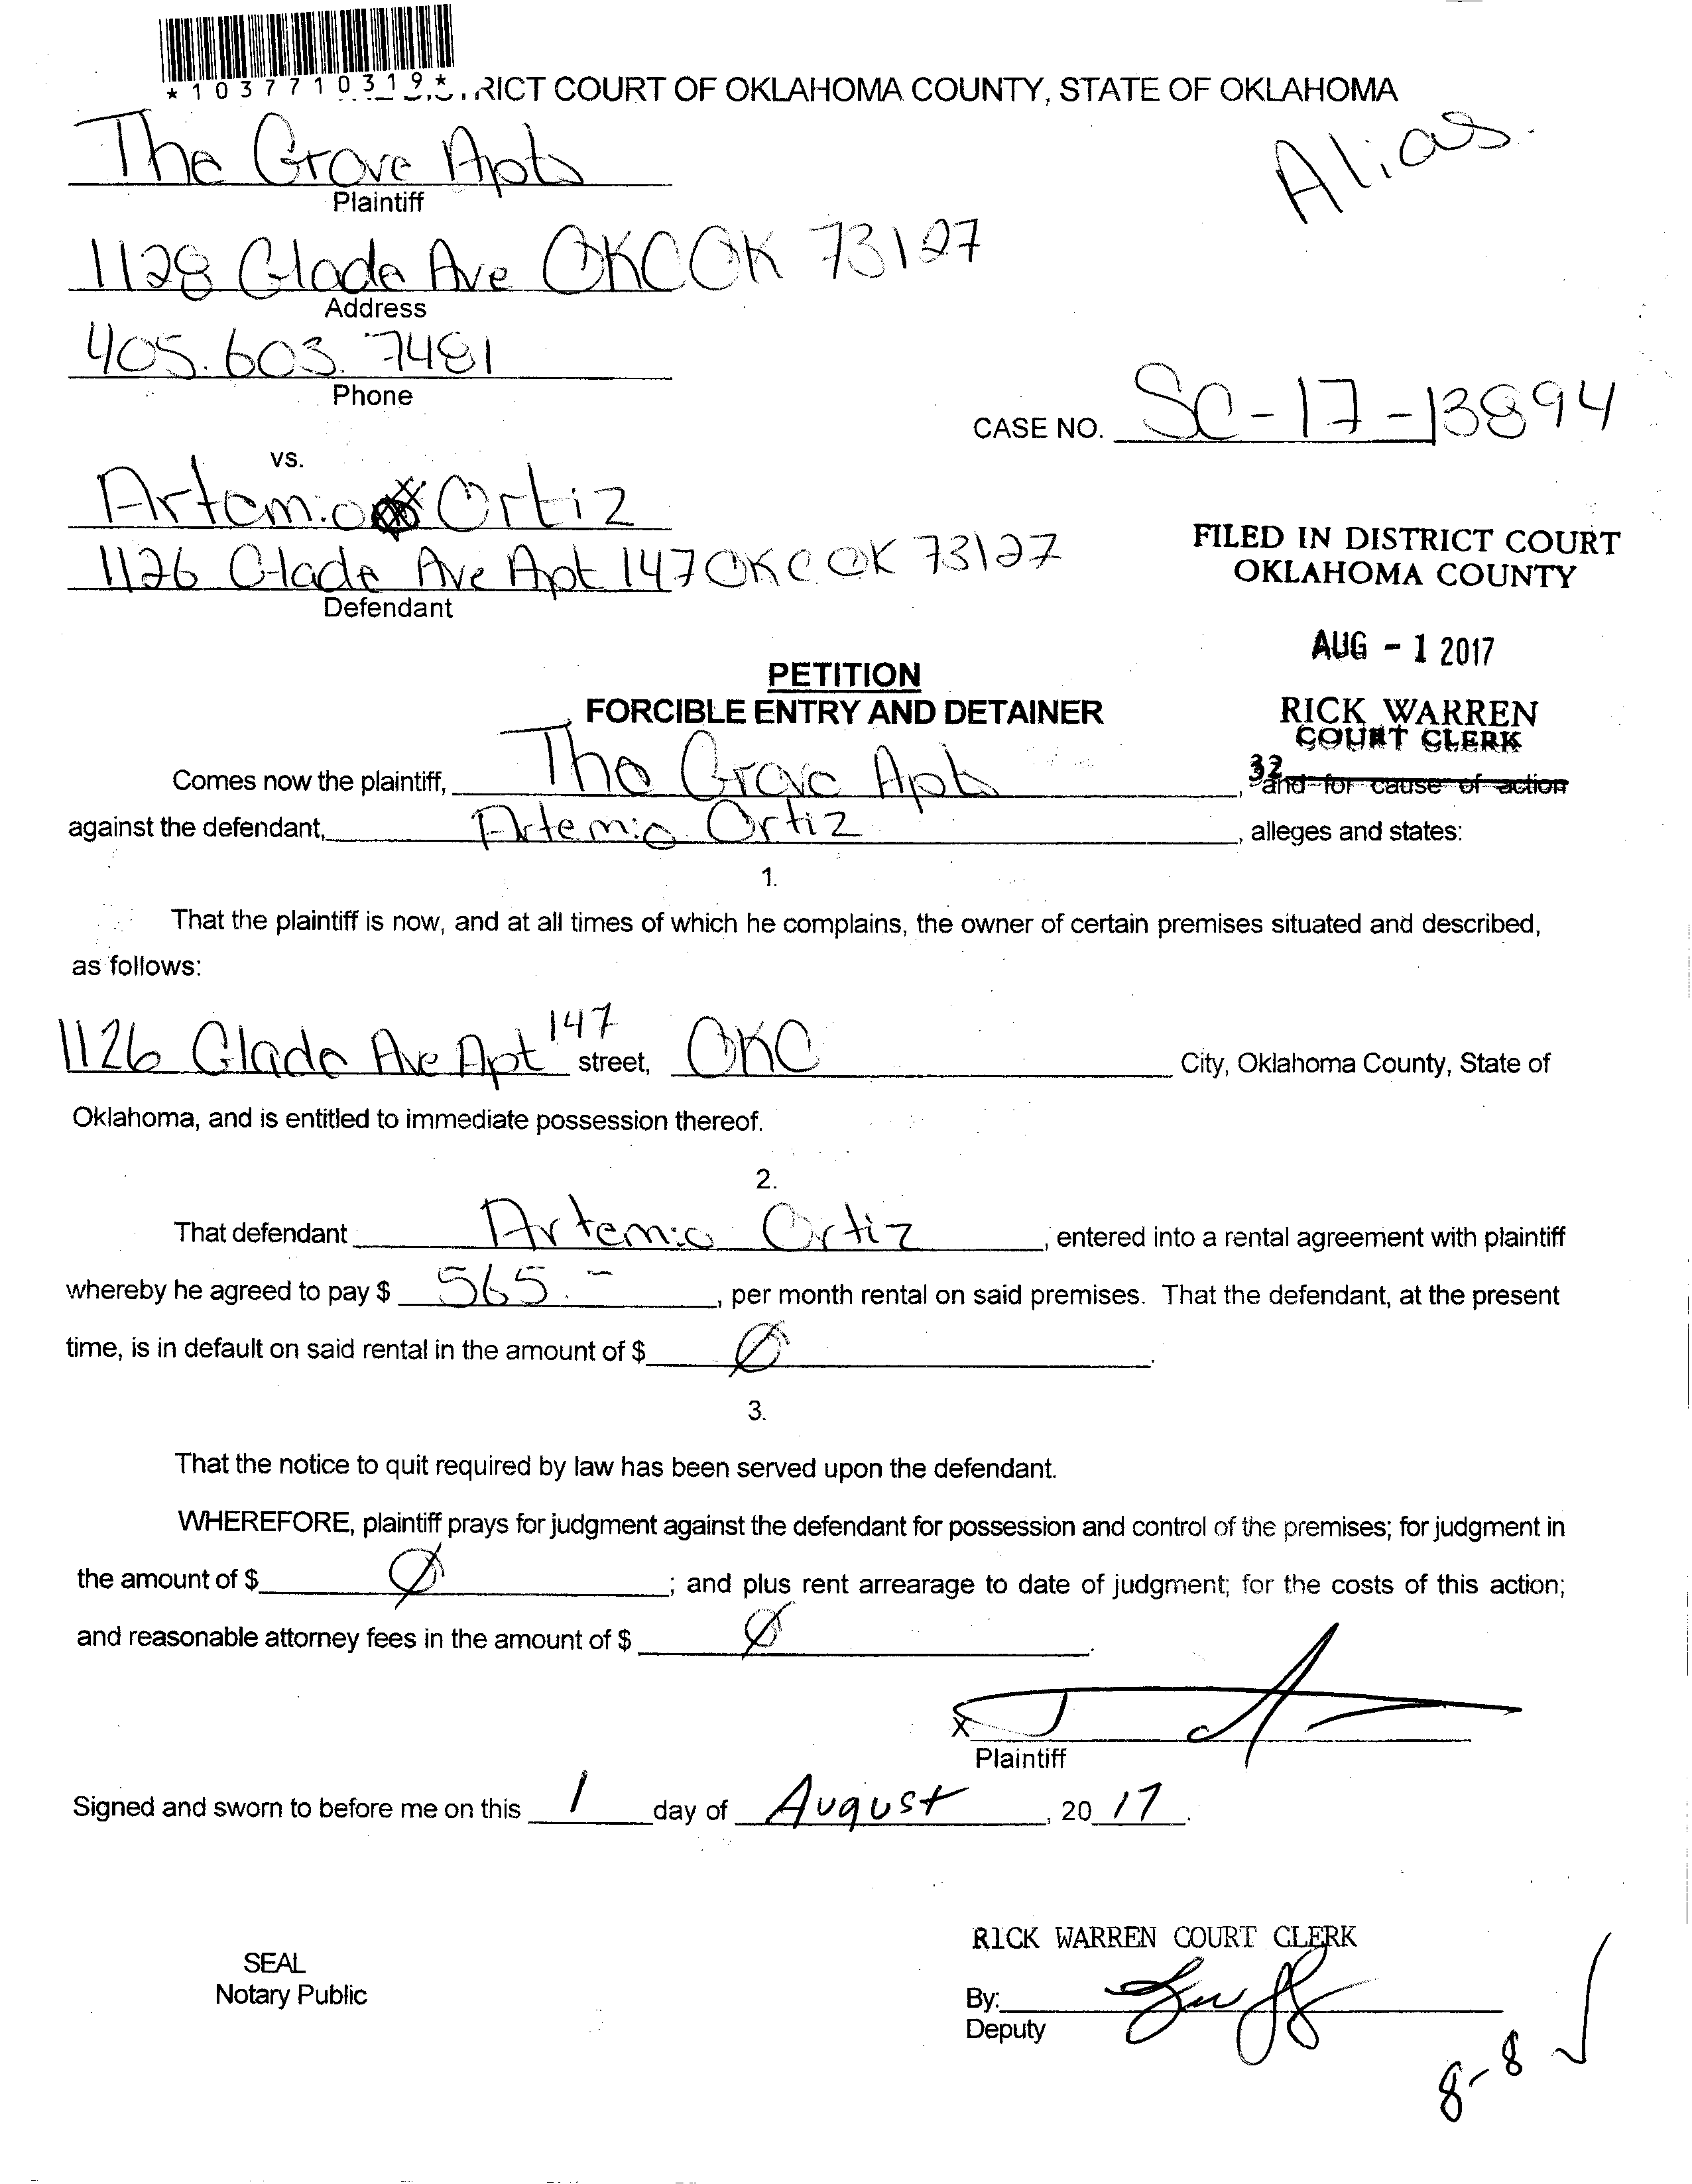 *1037710319*
RICT COURT OF OKLAHOMA COUNTY, STATE OF OKLAHOMA
The Grove Apts
Alias.
Plaintiff
1128 Glade Ave OKC OK 73127
Address
405.603.7481
Phone
CASE NO. SC-17-13894
vs.
Artemio Ortiz
1126 Glade Ave Apt 147 OKC OK 73127
Defendant
FILED IN DISTRICT COURT
OKLAHOMA COUNTY
AUG - 1 2017
RICK WARREN
COURT CLERK
32
PETITION
FORCIBLE ENTRY AND DETAINER
Comes now the plaintiff, The Grove Apts, and for cause of action
against the defendant, Artemio Ortiz, alleges and states:
1.
That the plaintiff is now, and at all times of which he complains, the owner of certain premises situated and described,
as follows:
1126 Glade Ave Apt 147 street, OKC City, Oklahoma County, State of
Oklahoma, and is entitled to immediate possession thereof.
2.
That defendant Artemio Ortiz, entered into a rental agreement with plaintiff
whereby he agreed to pay $ 565.-, per month rental on said premises. That the defendant, at the present
time, is in default on said rental in the amount of $ Ø.
3.
That the notice to quit required by law has been served upon the defendant.
WHEREFORE, plaintiff prays for judgment against the defendant for possession and control of the premises; for judgment in
the amount of $ Ø; and plus rent arrearage to date of judgment; for the costs of this action;
and reasonable attorney fees in the amount of $ Ø.
X
Plaintiff
Signed and sworn to before me on this 1 day of August, 20 17.
RICK WARREN COURT CLERK
SEAL
Notary Public
By:
Deputy
8-8 ✓